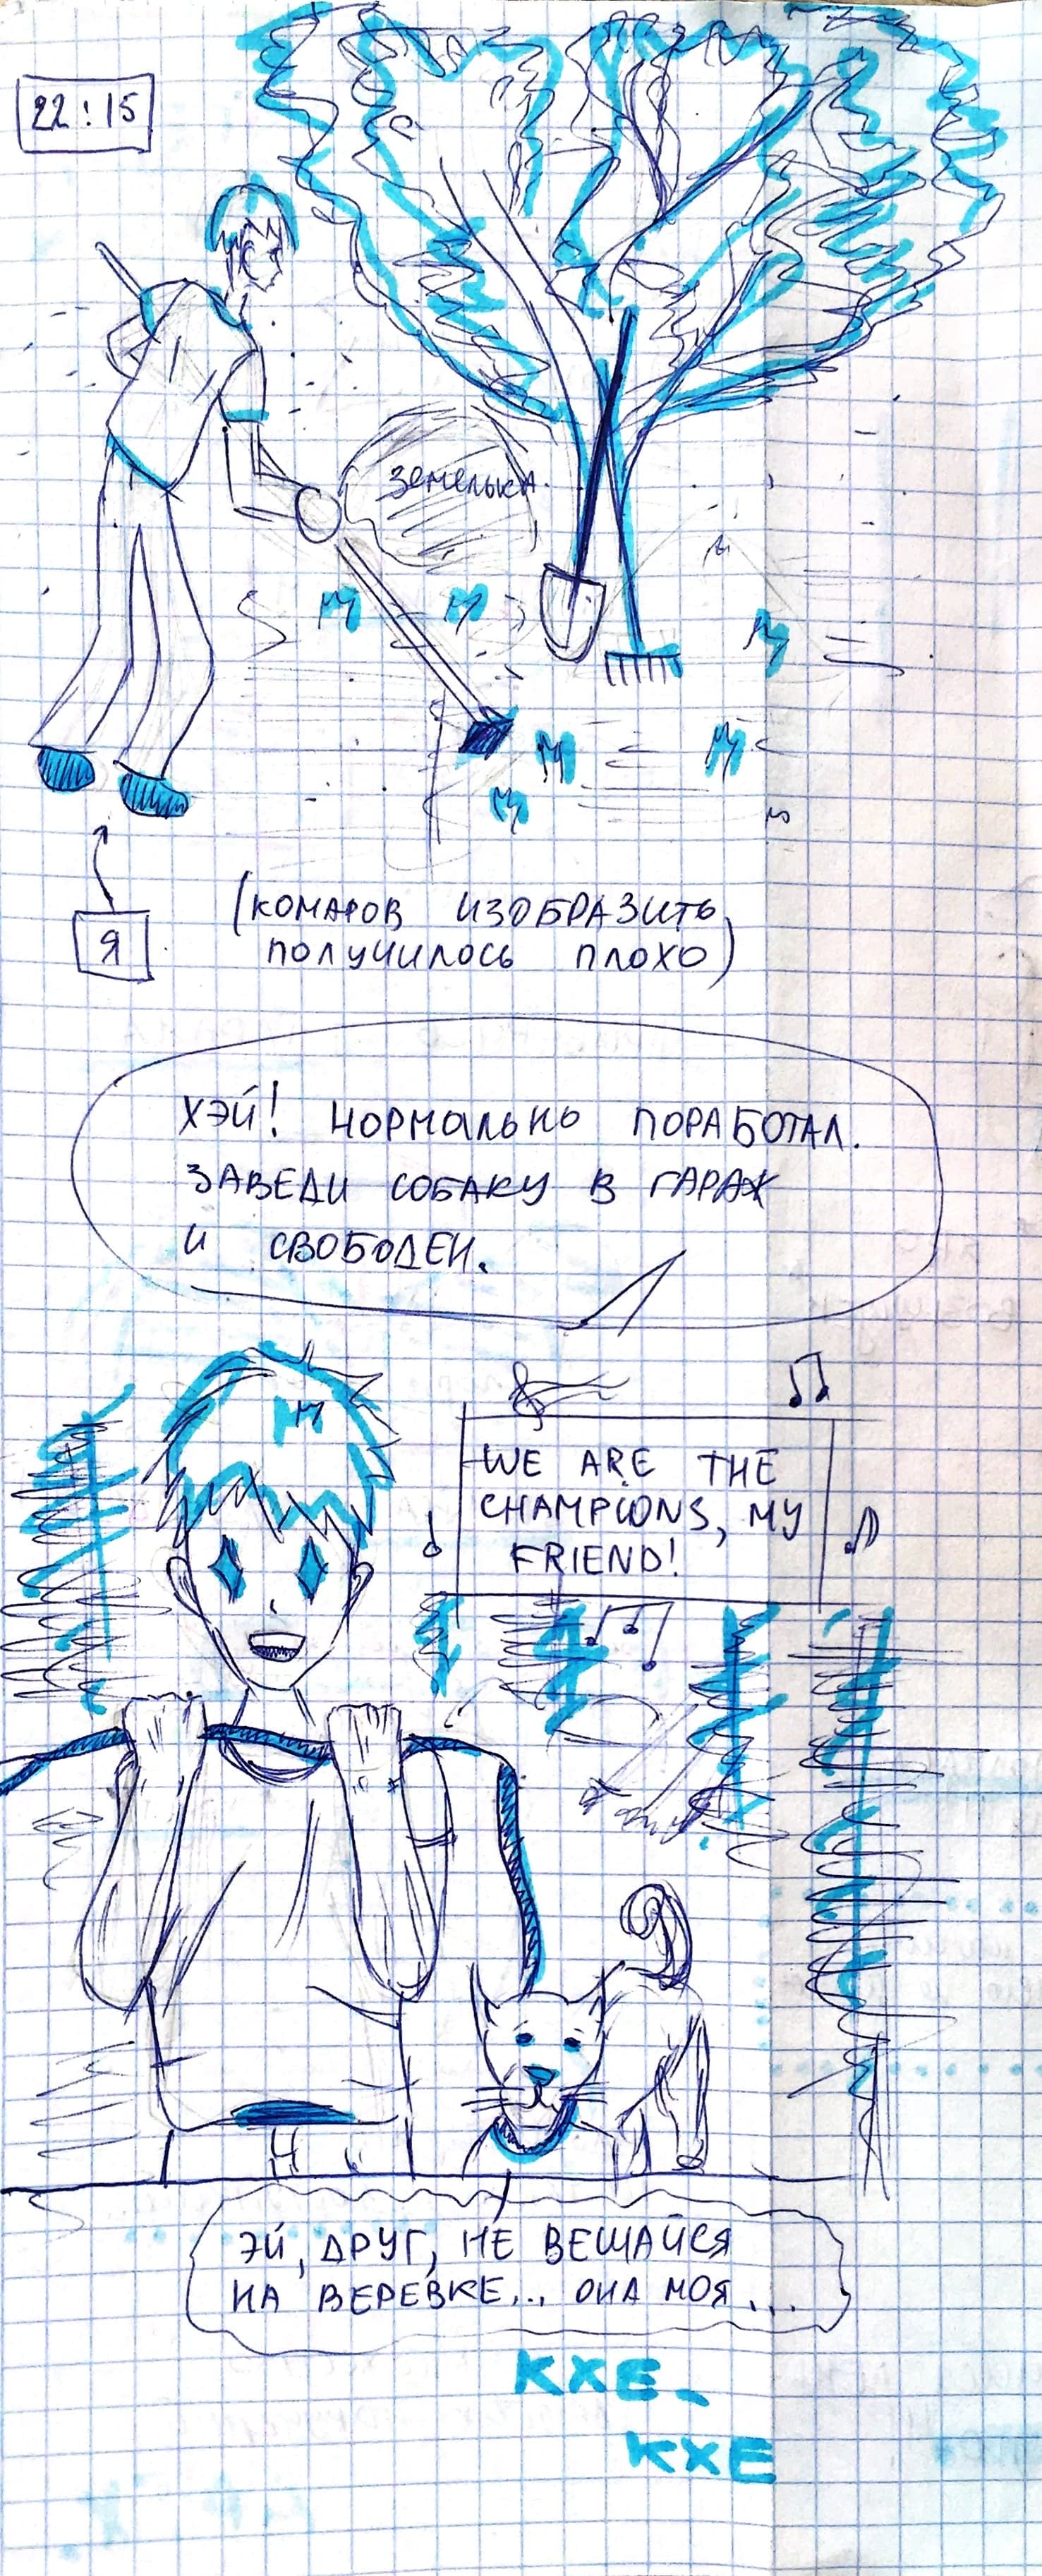 22:15
земелька
М М
М
М М
М
Я
(КОМАРОВ ИЗОБРАЗИТЬ
ПОЛУЧИЛОСЬ ПЛОХО)
ХЭЙ! НОРМАЛЬНО ПОРАБОТАЛ.
ЗАВЕДИ СОБАКУ В ГАРАЖ
И СВОБОДЕН.
М
WE ARE THE
CHAMPIONS, MY
FRIEND!
ЭЙ, ДРУГ, НЕ ВЕШАЙСЯ
НА ВЕРЕВКЕ... ОНА МОЯ...
КХЕ-
КХЕ